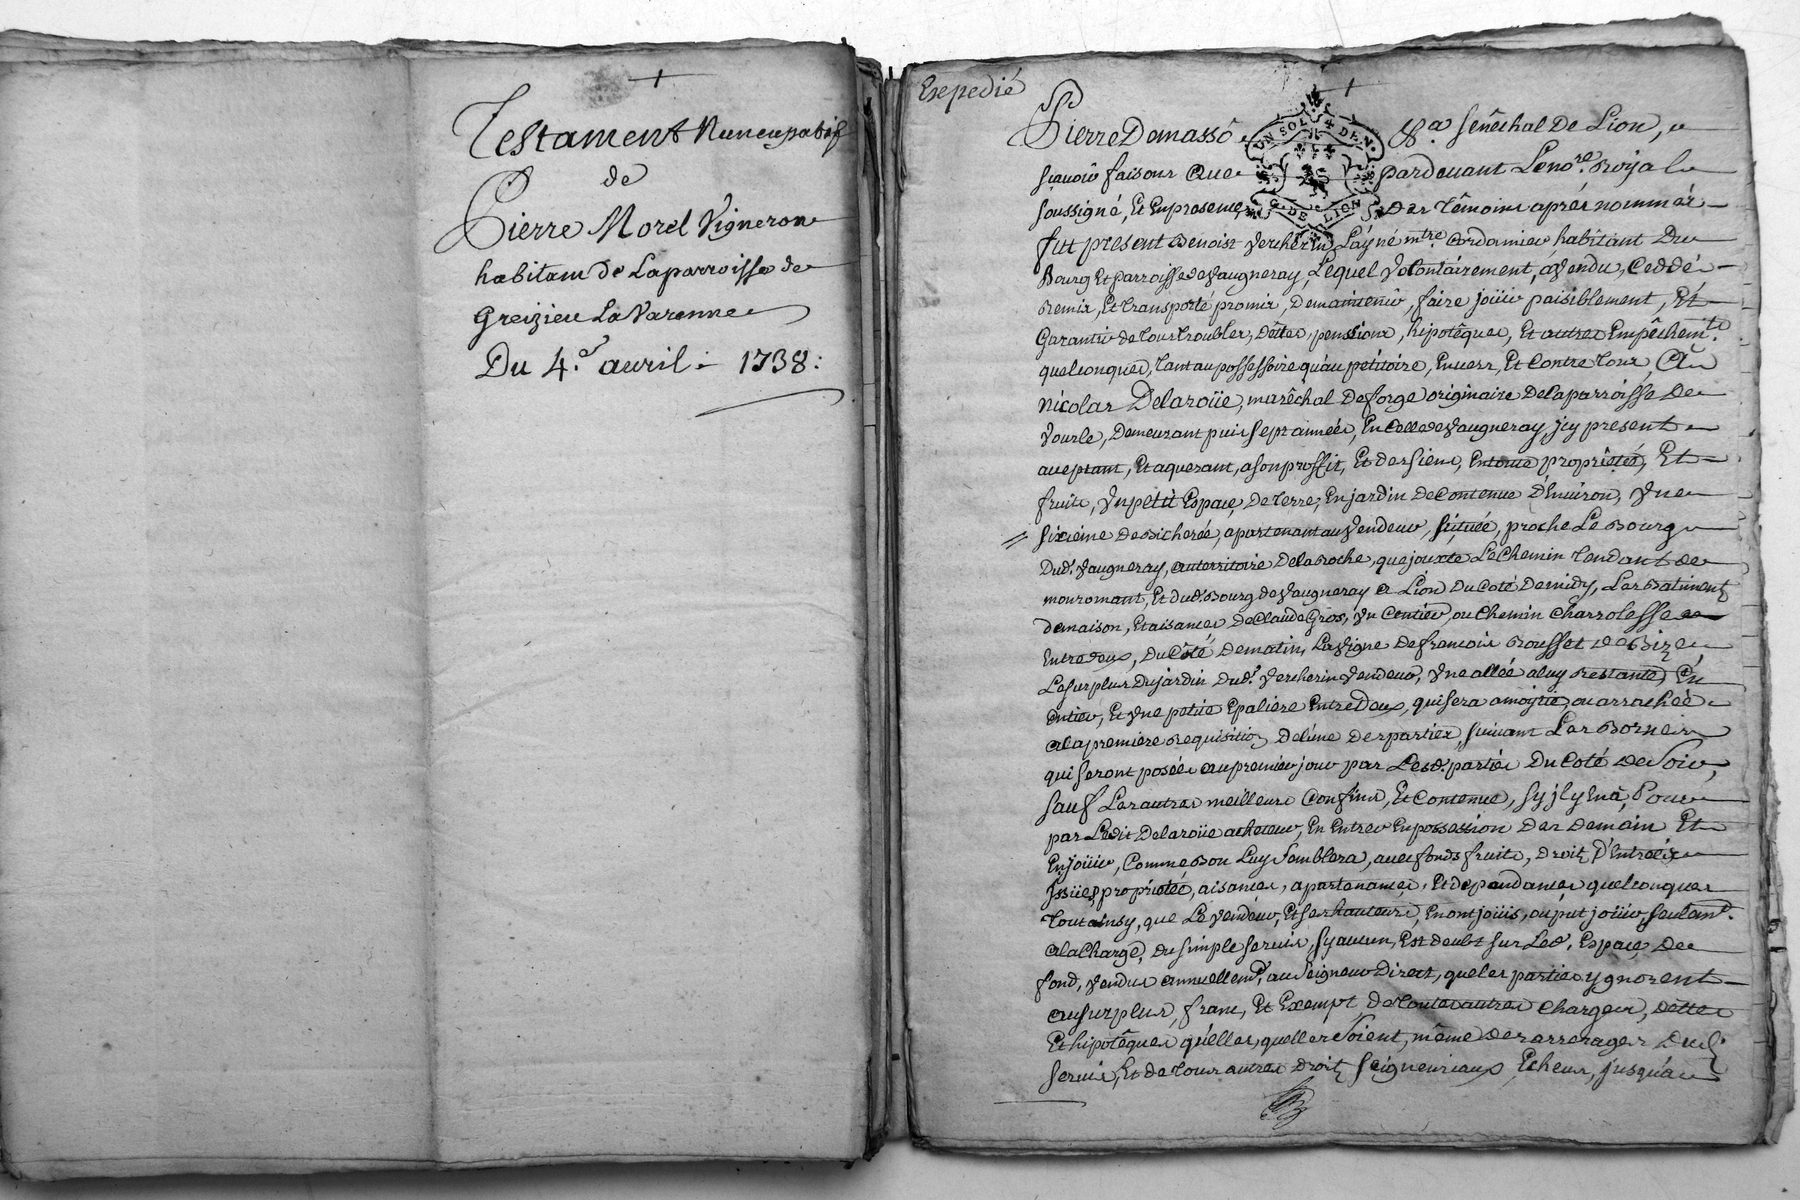 Testament Nuncupatif
de
Pierre Morel Vigneron
habitant de Laparroisse de
Greizieu La Varenne
Du 4.e avril : 1738 :
Expedié
Pierre Demasso &a Sénéchal De Lion,
UN SOL 4 DEN.
G. DE LION
sçavoir faisons Que pardevant Le no.re Royal
soussigné, Et En presence Des témoins aprés nommés
fut présent Benoist Vercherin L'ayné m.tre Cordonnier habitant Du
Bourg Et parroisse de Vaugneray, Lequel Volontairement, a Vendu, Ceddé
Remis, Et transporté promis, De maintenir, faire joüir paisiblement, Et
Garantir de tous troubles, Dettes, pensions, hipotêques, Et autres Empêchem.ts
quelconques, tant au possessoire qu'au pétitoire, Envers, Et Contre tous, Au
Nicolas Delaroüe, marêchal De forge originaire De la parroisse De
Vourle, Demeurant puis sept années, En Celle de Vaugneray, jcy présent
aceptant, Et aquerant, a son proffit, Et des siens, En toute propriétés, Et
fruits, Vn petit Espace De terre, En jardin De Contenue D'Environ, Vne
sixième De Bicherée, apartenant au Vendeur, Située, proche Le Bourg
Dud. Vaugneray, au territoire De la Roche, que jouxte Le Chemin tendant de
mouromant, Et dud. Bourg de Vaugneray a Lion Du Coté De midy, Les Batiments
de maison, Et aisances De Claude Gros, Vn Sentier, ou Chemin Charrolesse
Entre deux, Du Côté De matin, La Vigne De francois Rousset de Bize,
Le surplus Du jardin Dud. Vercherin Vendeur, Vne allée a luy Restante, En
Entier, Et Vne petite Epaliere Entre Deux, qui sera amoytié, ou arrachée
a la premiere Requisition De l'une Des parties, suivant Les Bornes
qui seront posées au premier jour par Lesd. parties Du Coté de Soir,
sauf Les autres meilleurs Confins, Et Contenue, sy jl y En a, Pour
par Ledit Delaroüe acheteur, En Entrer En possession Des Demain Et
En joüir, Comme Bon Luy Semblera, avec fonds fruits, Droits D'Entrées
Issües, propriétés, aisances, apartenances, Et dépendances quelconques
tout ainsy, que Le Vendeur, Et ses hauteurs, En ont joüis, ou put joüir, seulem.t
a la Charge, Du simple servis, sy aucun, Est deubt sur Led. Espace, De
fond, Vendu annuellem.t au Seigneur Direct, que les parties ygnorent
au surplus, franc, Et Exempt De toutes autres Charges, Dettes
Et hipotêques qu'elles, quelles Soient, même Des arrerages Dud.
servis, Et de tous autres Droits Seigneuriaux Echeus, jusqu'a